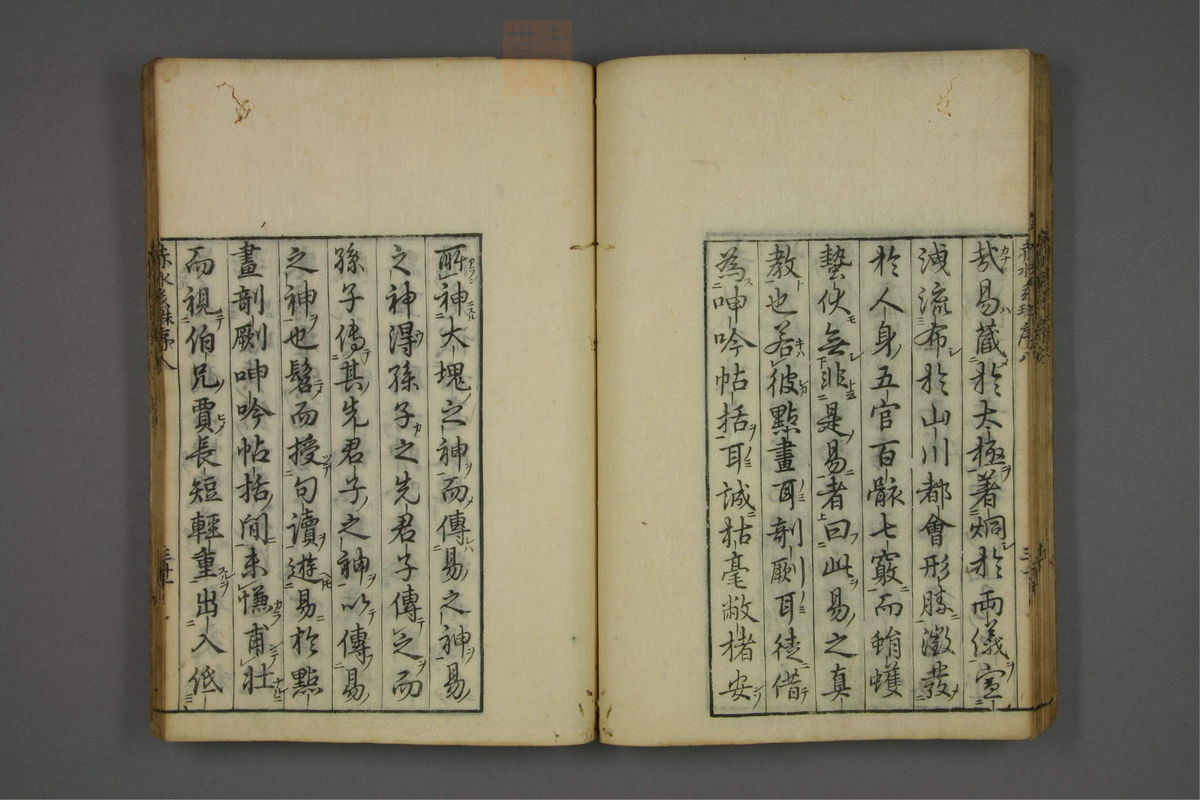 哉易蔵於太極著炯於両儀宣
洩流布於山川都會形勝激發
於人身五官百骸七竅而蜎蠖
蟄伏無非是易者曰此易之真
教也若彼點畫耳剞劂耳徒借
為呻吟帖括耳誠枯毫敝楮安
所神大塊之神而傳易之神易
之神得孫子之先君子傳之而
孫子傳其先君子之神以傳易
之神也髫而授句讀遊易於點
畫剞劂呻吟帖括間未慊甫壯
而視伯兄賈長短輕重出入低